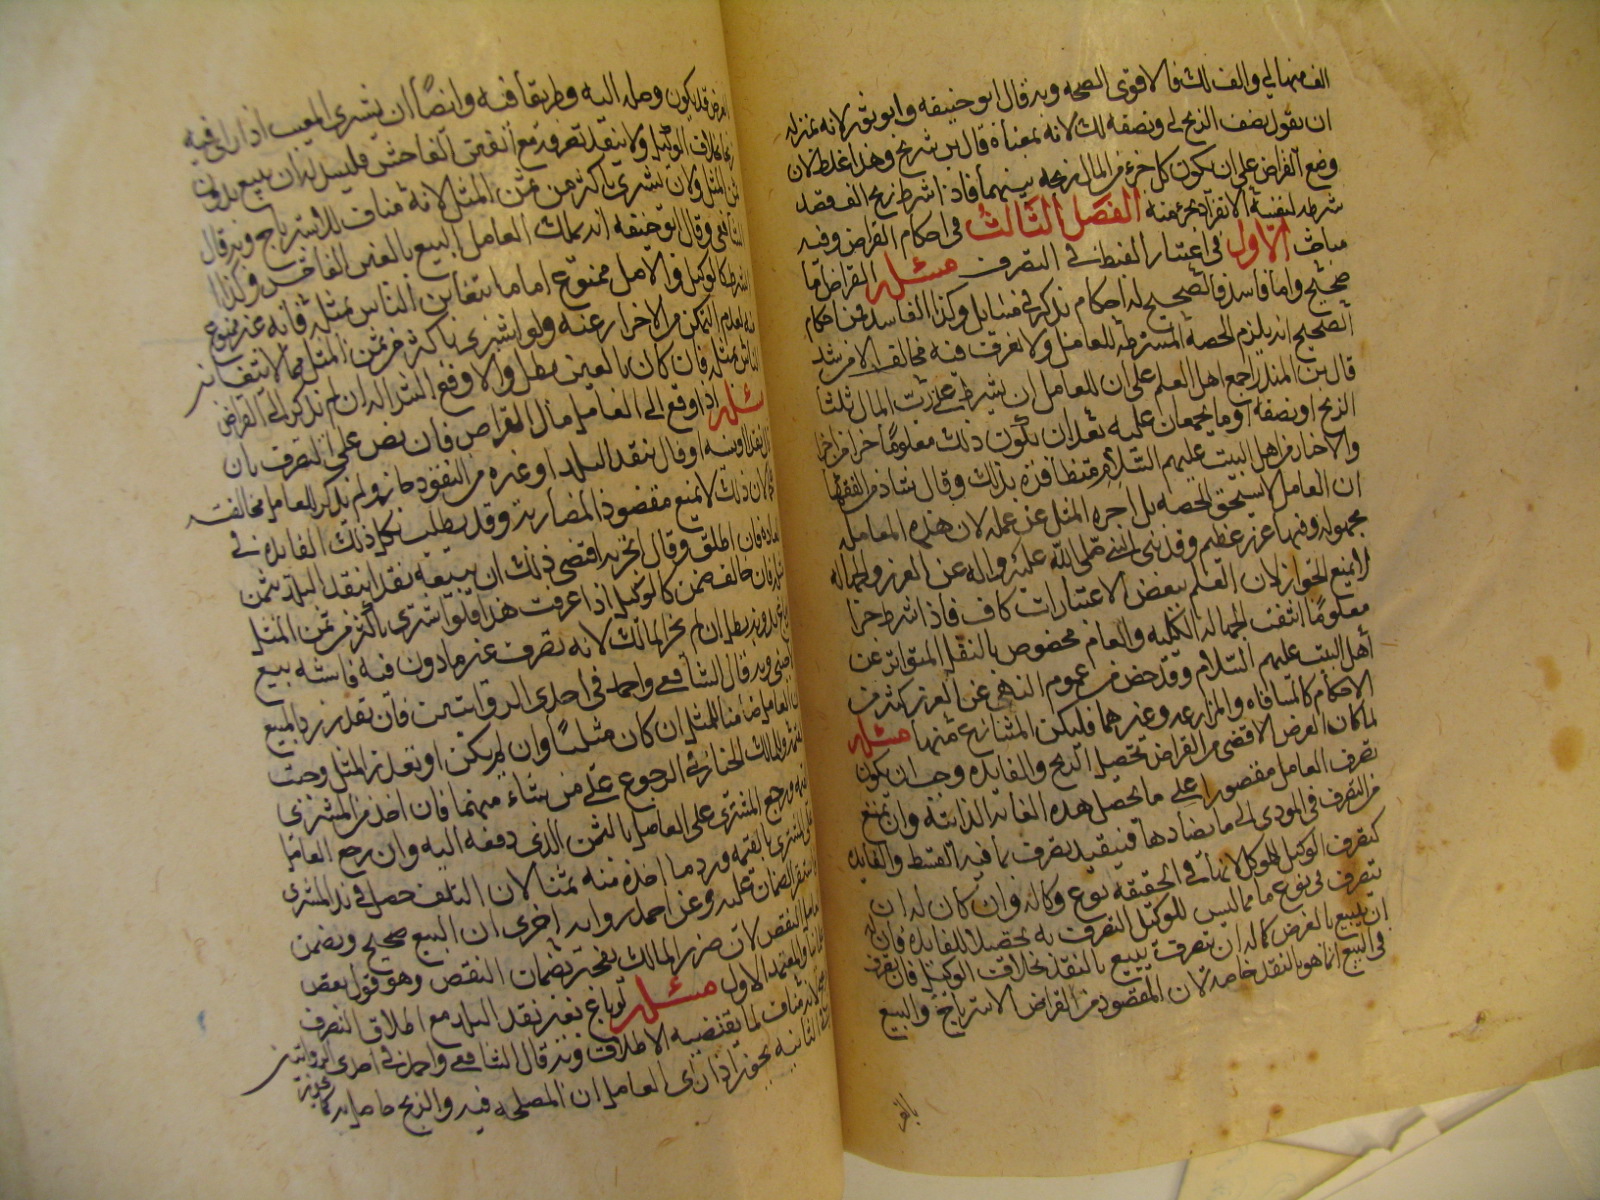 الف منها لي والف لك فالاقوى الصحه وبه قال ابو حنيفه وابو ثور لانه بمنزله
ان يقول نصف الربح لي ونصفه لك لانه بمعناه قال بن شريح وهذا غلط لان
وضع القراض على ان يكون كل جزء من المال ربحه بينهما فاذا شرط ربح الف فقد
شرط لنفسه الانفراد بجزء منه الفصل الثالث في احكام القراض وفيه
مباحث الاول في اعتبار الغبطه في التصرف مسئله القراض اما
صحيح واما فاسد فالصحيح له احكام نذكر في مسايل وكذا الفاسد فمن احكام
الصحيح انه يلزم الحصه المشترطه للعامل ولا نعرف فيه مخالفا الا من شد
قال بن المنذر اجمع اهل العلم على ان للعامل ان يشترط على رب المال ثلث
الربح او نصفه او ما يجمعان عليه بعد ان يكون ذلك معلوما جزا من اجزا
والاخبار من اهل البيت عليهم السلام متظافره بذلك وقال شاذ من الفقها
ان العامل لا يستحق الحصه بل اجره المثل عن عمله لان هذه المعامله
مجهوله وفيها غرر عظيم وقد نهى النبي صلى الله عليه واله عن الغرر والجهاله
لا يمنع الجواز لان العلم ببعض الاعتبارات كاف فاذا شرط جزا
معلوما انتفت الجهاله الكليه والعام مخصوص بالنقل المتواتر عن
اهل البيت عليهم السلام وقد خص من عموم النهي عن الغرر كثير من
الاحكام كالمساقاه والمزارعه وغيرهما فليكن المتنازع منها مسئله
لما كان الغرض الاقصى من القراض تحصيل الربح والفايده وجب ان يكون
تصرف العامل مقصورا على ما يحصل هذه الغايه الذاتيه وان يمنع
من التصرف في المودى الى ما يضادها فيتقيد تصرفه بما فيه الغبطه والفايده
كتصرف الوكيل للموكل لانه في الحقيقه نوع وكاله وان كان له ان
يتصرف في نوع ما مما ليس للوكيل التصرف به تحصيلا للفايده فان له
ان يبيع بالعرض كما له ان يبيع بالنقد بخلاف الوكيل فان تصرفه
في البيع انما هو بالنقد خاصه لان المقصود من القراض الاسترباح والبيع
قد يكون وصله اليه وطريقا فيه وايضا ان يشتري المعيب اذا راى فيه
ربحا بخلاف الوكيل ولا ينفذ تصرفه مع الغبن الفاحش فليس له ان يبيع بدون
ثمن المثل ولا ان يشتري باكثر من ثمن المثل لانه مناف للاسترباح وبه قال
الشافعي وقال ابو حنيفه انه يملك العامل البيع بالغبن الفاحش وكذا
كالوكيل والاصل ممنوع اما ما يتغابن الناس بمثله فانه غير ممنوع
منه لعدم التمكن من الاحتراز عنه ولو اشترى باكثر من ثمن المثل مما لا يتغابن
الناس بمثله فان كان بالعين بطل والا وقع الشرا له ان لم يذكر القراض
مسئله اذا دفع الى العامل مال القراض فان نص على التصرف بان
قال نقدا ونسيه او قال بنقد البلد او غيره من النقود جاز ولم يكن للعامل مخالفته
لان ذلك لا يمنع مقصود المضاربه وقد يطلب بكل ذلك الفايده في
العاده فان اطلق وقال اتجر به اقتضى ذلك ان يبيعه نقدا بنقد البلد بثمن
مثله فان خالف ضمن كالوكيل اذا عرفت هذا فلو اشترى باكثر من ثمن المثل
او باع بدونه بطل ان لم يجز المالك لانه تصرف غير ماذون فيه فاشبه بيع
الاجنبي وبه قال الشافعي واحمد في احدى الروايتين فان تعذر رد المبيع
ضمن العامل المثل ان كان مثليا وان لم يكن او تعذر المثل وجبت
القيمه وللمالك الخيار في الرجوع على من شاء منهما فان اخذ من المشتري
القيمه ورجع المشتري على العامل بالثمن الذي دفعه اليه وان رجع العامل
على المشتري بالقيمه ورد ما اخذه منه ثمنا لان التلف حصل في يد المشتري
فاستقر الضمان عليه وعن احمد روايه اخرى ان البيع صحيح ويضمن
العامل النقص لان ضرر المالك ينجبر بضمان النقص وهو قول بعض
علمائنا والمعتمد الاول مسئله لو باع بغير نقد البلد مع اطلاق التصرف
لم يصح لانه مناف لما يقتضيه الاطلاق وبه قال الشافعي واحمد في احدى الروايتين
وفي الثانيه يجوز اذا راى العامل ان المصلحه فيه والربح حاصل به
بالعرض